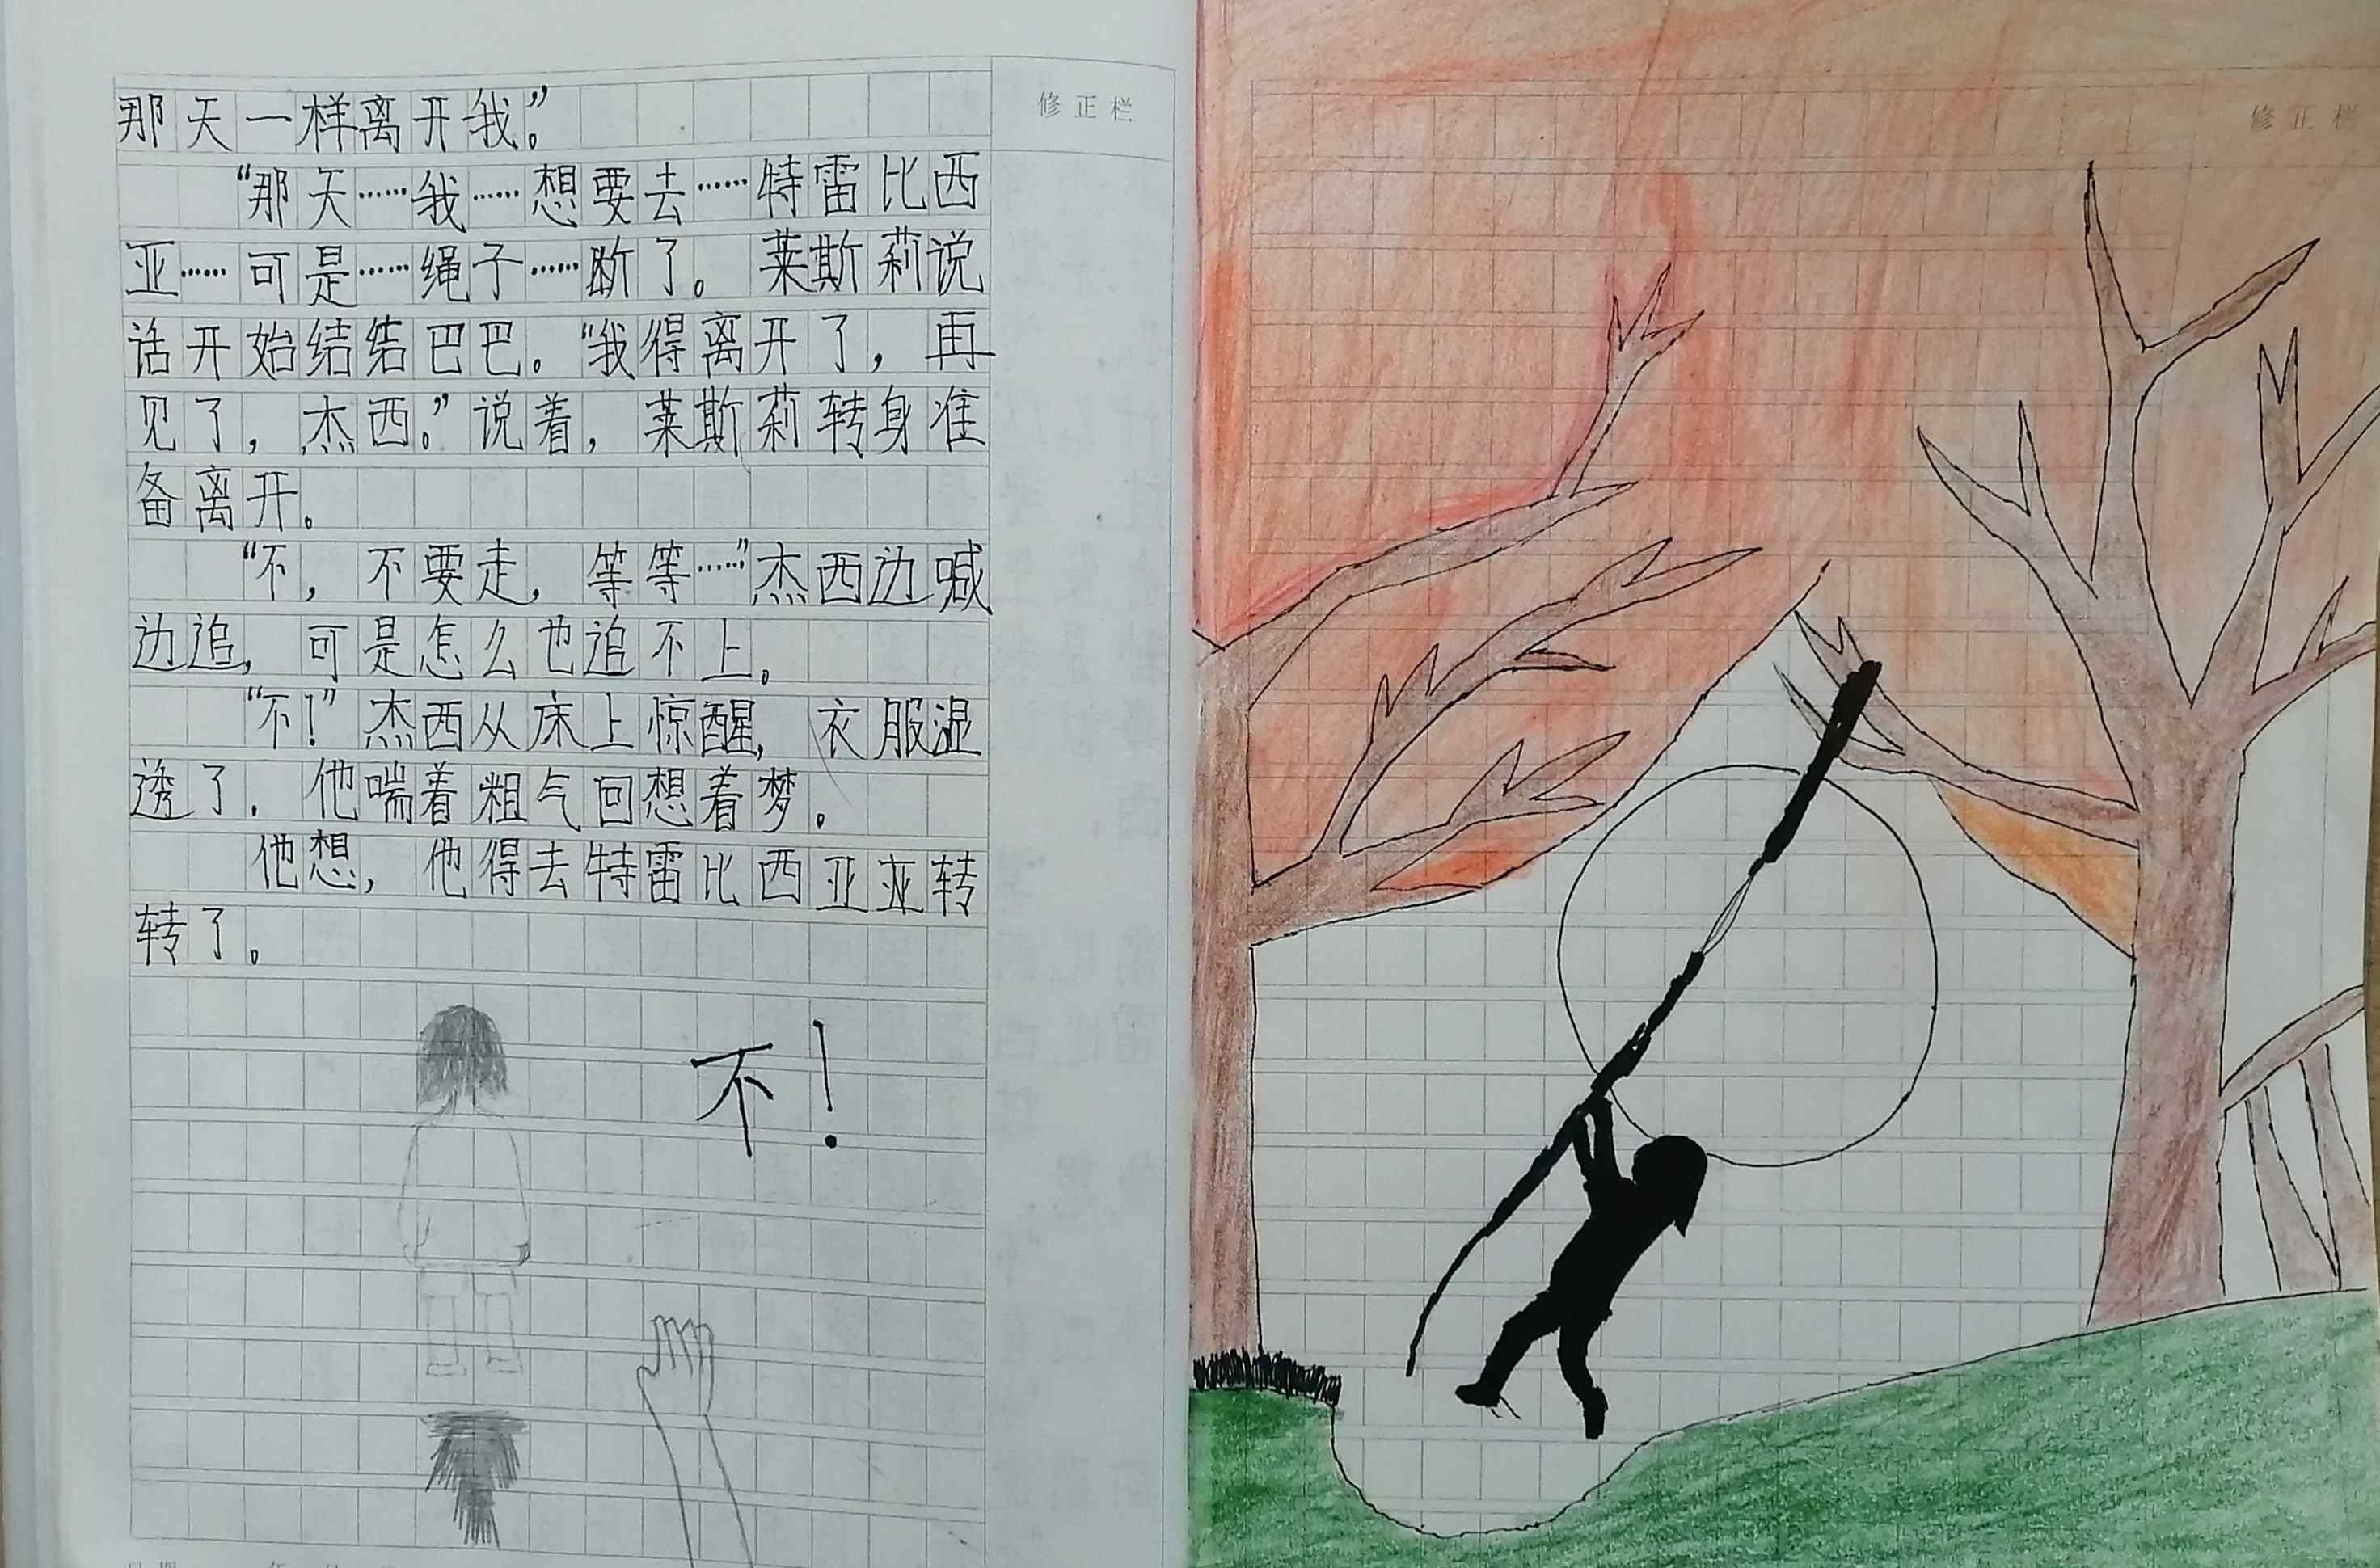 那天一样离开我。”
修正栏
“那天……我……想要去……特雷比西
亚……可是……绳子……断了。莱斯莉说
话开始结结巴巴。“我得离开了，再
见了，杰西。”说着，莱斯莉转身准
备离开。
“不，不要走，等等……”杰西边喊
边追，可是怎么也追不上。
“不！”杰西从床上惊醒，衣服湿
透了．他喘着粗气回想着梦。
他想，他得去特雷比西亚亚转
转了。
不！
修正栏